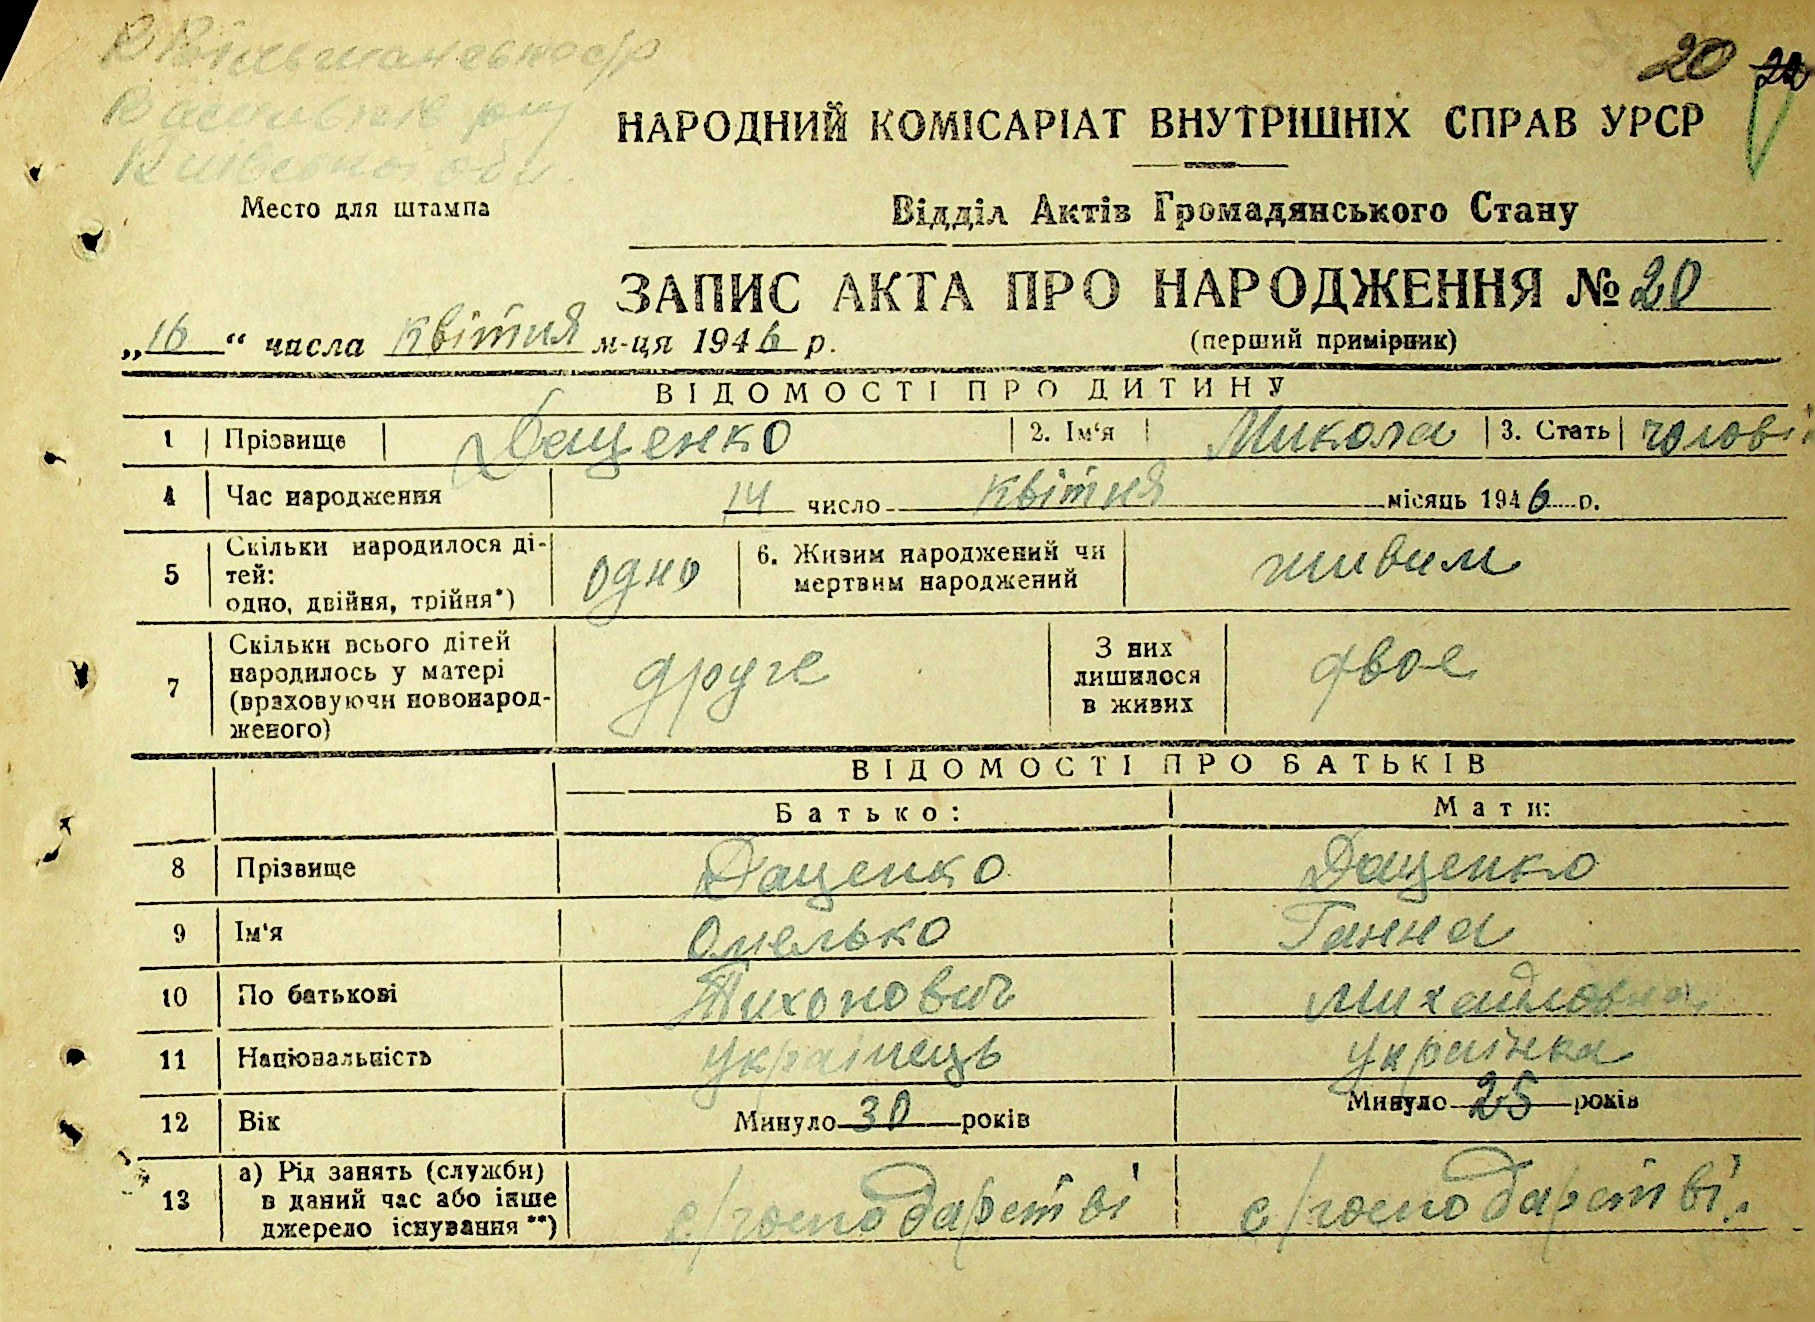 В Вільшанська с/р
Васильків р-ну
Київської обл.
20 22
НАРОДНИЙ КОМІСАРІАТ ВНУТРІШНІХ СПРАВ УРСР
Место для штампа
Відділ Актів Громадянського Стану
ЗАПИС АКТА ПРО НАРОДЖЕННЯ № 20
„16“ числа квітня м-ця 1946 р.
(перший примірник)
ВІДОМОСТІ ПРО ДИТИНУ
1 Прізвище Даценко 2. Ім'я Микола 3. Стать чолові
4 Час народження 14 число квітня місяць 1946 р.
5 Скільки народилося ді-
тей:
одно, двійня, трійня*) одно 6. Живим народжений чи
мертвим народжений живим
7 Скільки всього дітей
народилось у матері
(враховуючи новонарод-
женого) друге З них
лишилося
в живих двое
ВІДОМОСТІ ПРО БАТЬКІВ
Батько: Мати:
8 Прізвище Даценко Даценко
9 Ім'я Омелько Ганна
10 По батькові Тихонович Михайловна
11 Національність українець українка
12 Вік Минуло 30 років Минуло 25 років
13 а) Рід занять (служби)
в даний час або інше
джерело існування**) с/господарстві с/господарстві